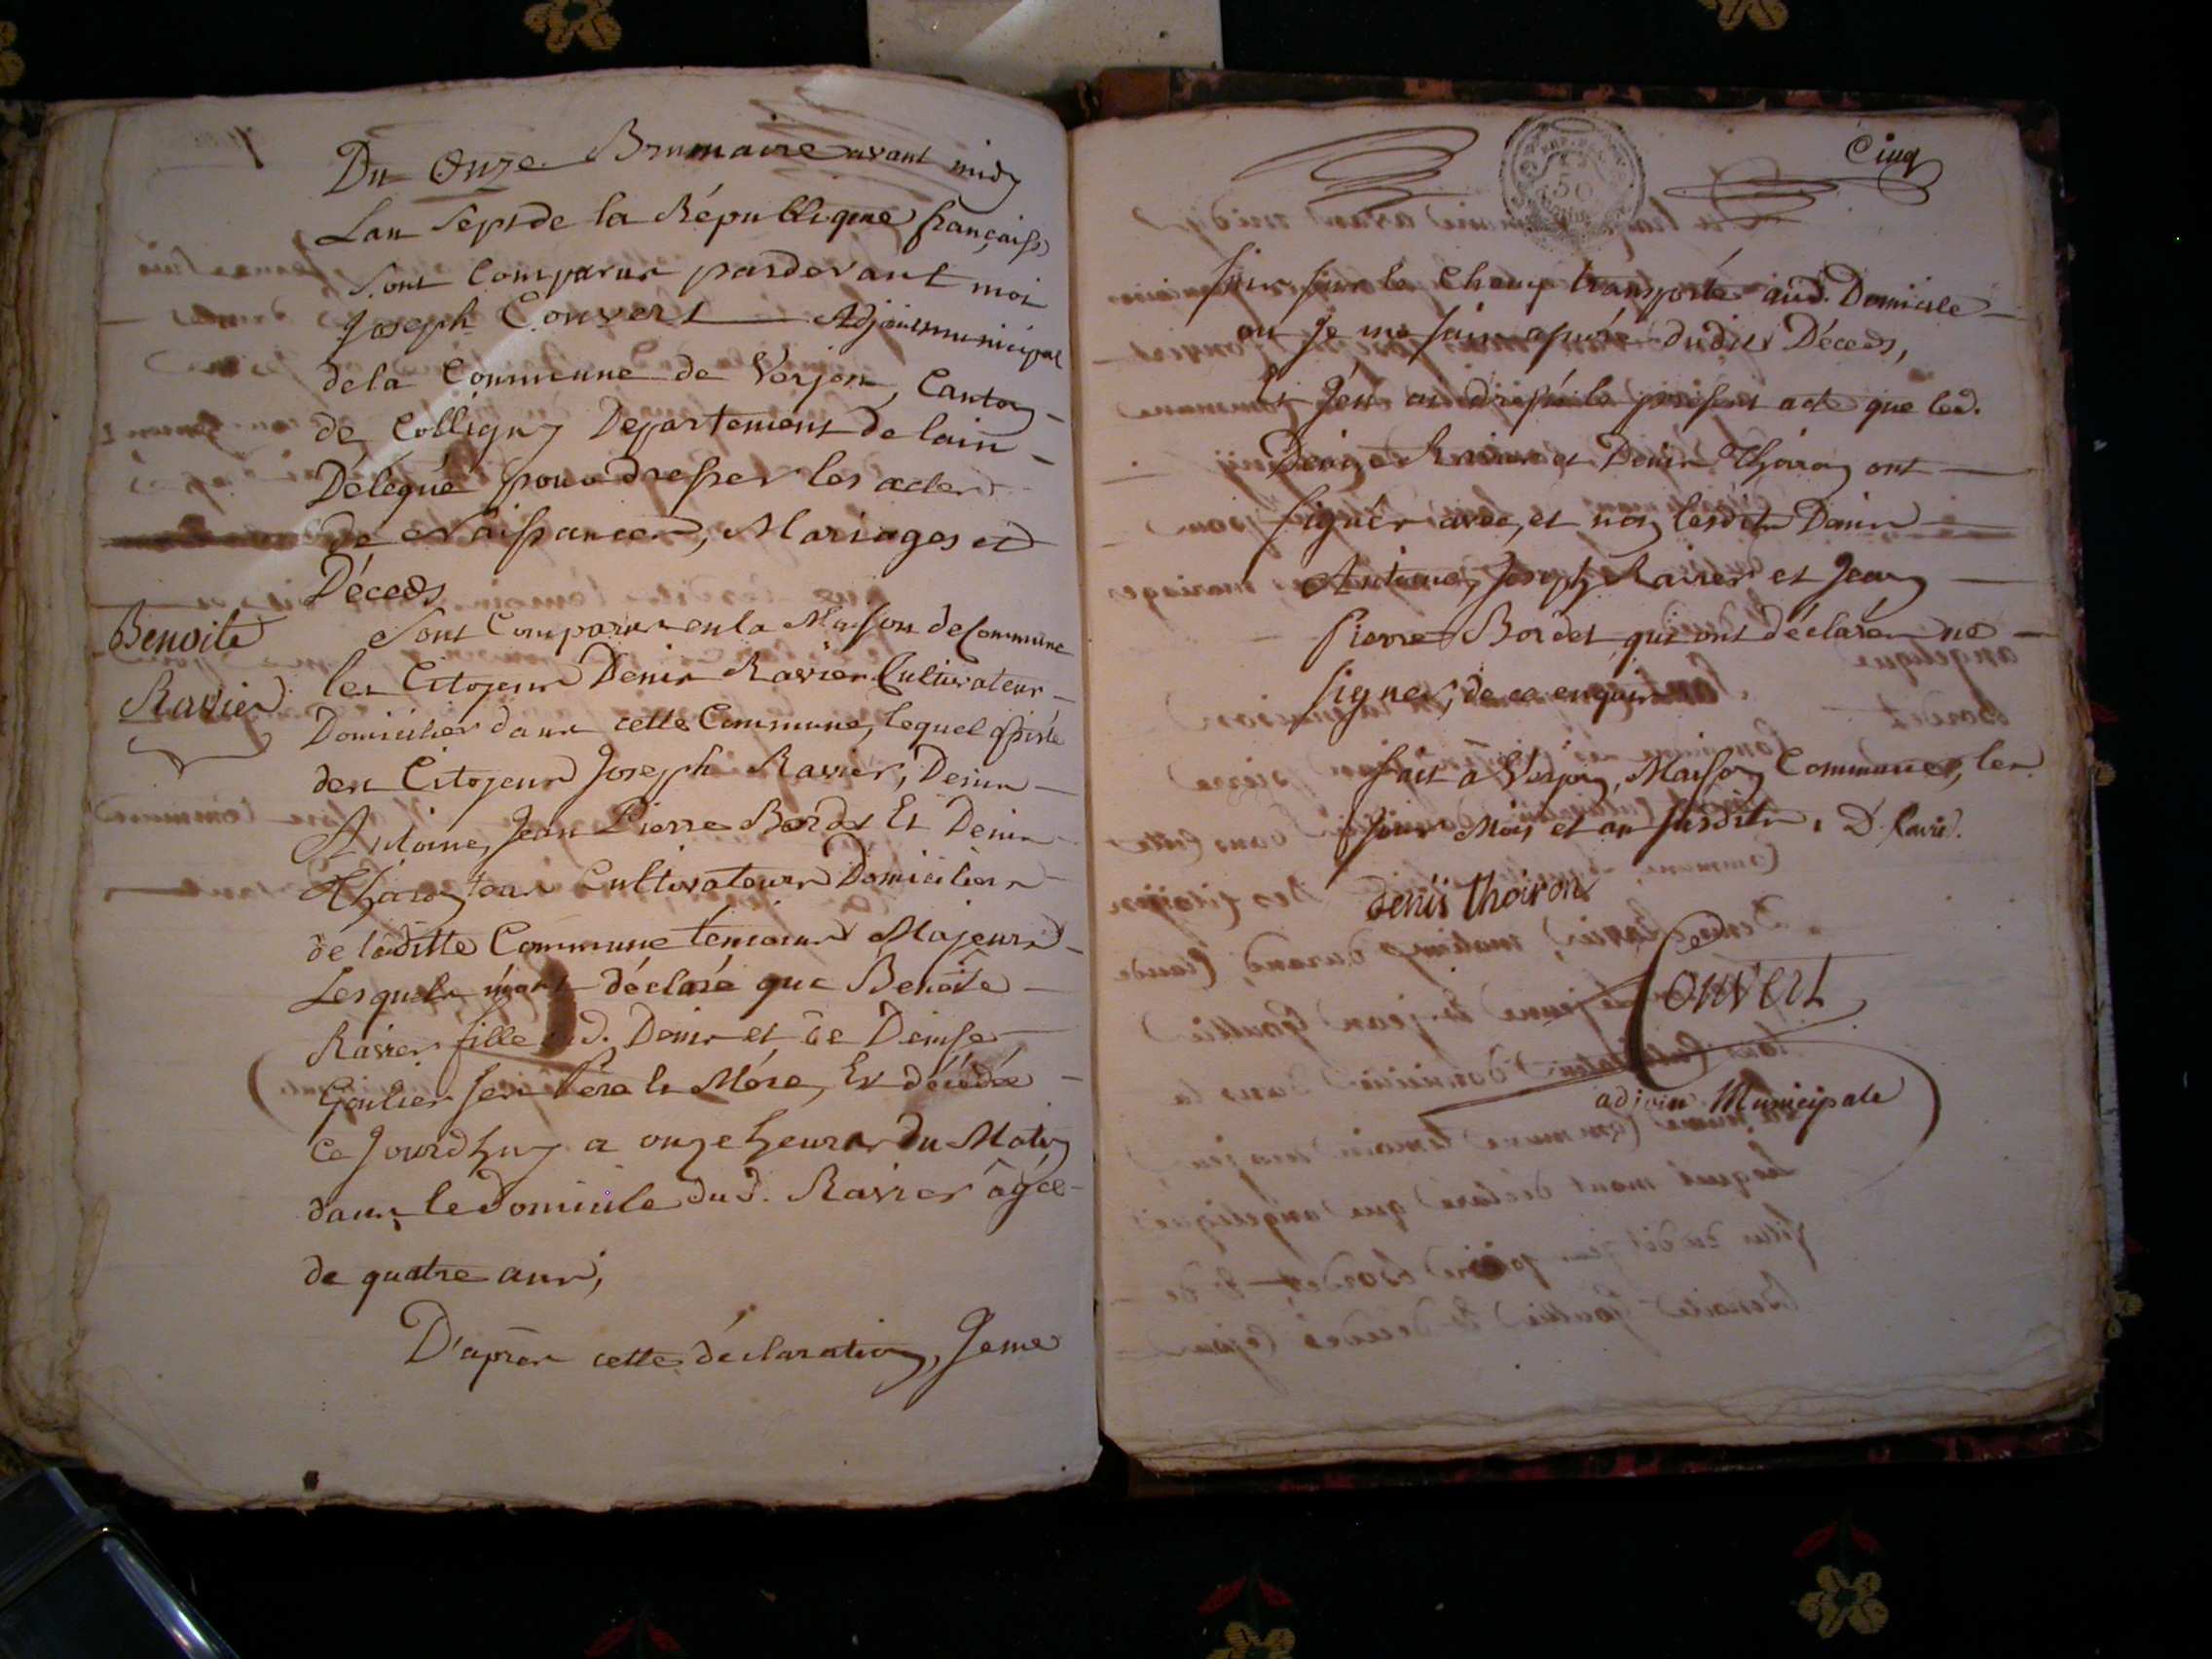 Du Onze Brumaire avant midy
Lan Sept de la République française
Sont Comparus pardevant moi
Joseph Convert Adjoint municipal
de la Commune de Verjon, Canton
de Colligny Departement de lain
Délégué pour dresser les actes
de Naissances, Mariages et
Déceds
Benoite
Ravier
Sont Comparus en la Maison de Commune
les Citoyens Denis Ravier Cultivateur
Domicilier dans cette Commune, lequel assisté
des Citoyens Joseph Ravier, Denis
Antoine, Jean Pierre Bordet Et Denis
Thoiron tous Cultivateurs Domiciliers
de laditte Commune temoins Majeurs
Lesquels mont déclaré que Benoite
Ravier fille du d. Denis et de Denise
Goulier ses Père et Mére, Est décédée
ce Jourdhuy a onze heures du Matin
dans le domicile dud. Ravier âgée
de quatre ans,
D'après cette déclaration, Je me
Cinq
50
suis sur le Champ transporté aud. Domicile
ou Je me suis assuré dudit Déceds,
Et J'en ai dressé le présent acte que led.
Denis Ravier et Denis Thoiron ont
signés avec, et non lesdits Denis
Antoine, Joseph Ravier et Jean
Pierre Bordet qui ont déclarés ne
signer, de ce enquis
fait a Verjon, Maison Commune, les
Jour Mois et an susdits, D. Ravier.
denis thoiron
Convert
adjoin Municipale